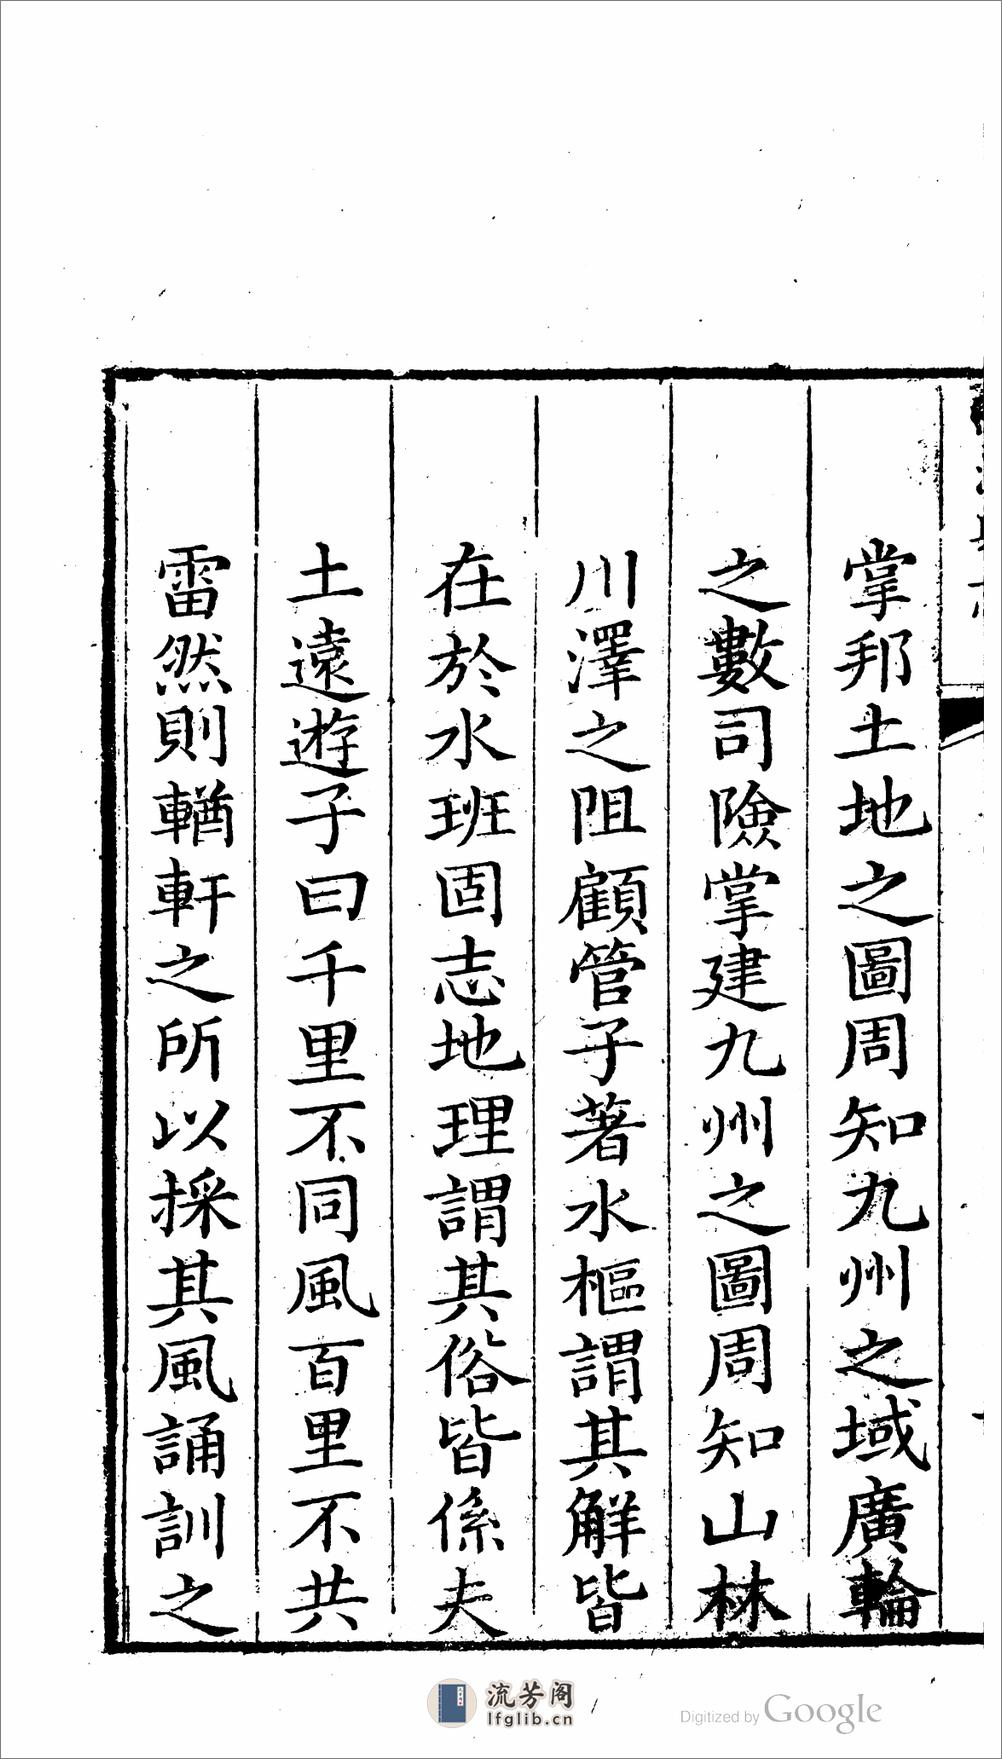 掌邦土地之圖周知九州之域廣輪
之數司險掌建九州之圖周知山林
川澤之阻顧管子著水樞謂其解皆
在於水班固志地理謂其俗皆係夫
土遠遊子曰千里不同風百里不共
雷然則輶軒之所以採其風誦訓之
流芳阁
lfglib.cn
Digitized by Google